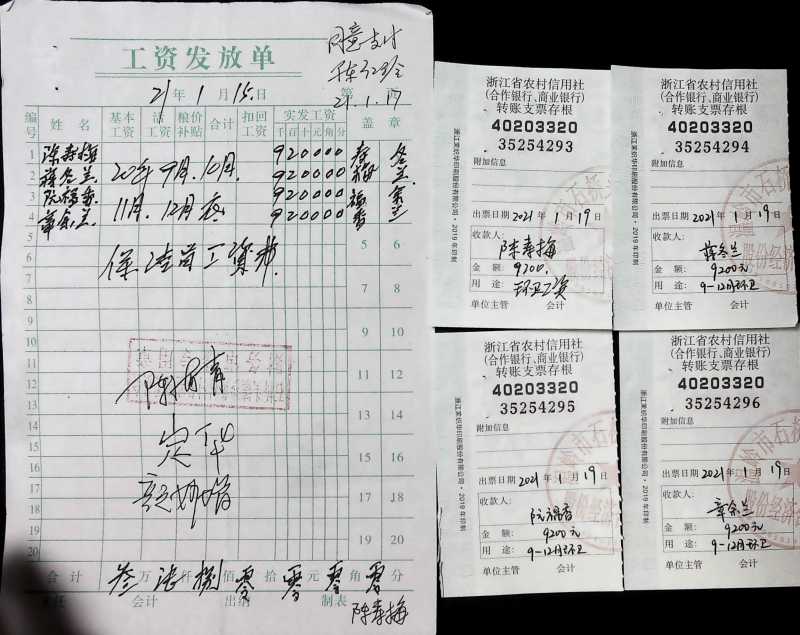 同意支付
21.1.17
工资发放单
21年1月15日 第 页
编号 姓名 基本工资 活工资 粮价补贴 合计 扣回工资 实发工资 盖章
千百十元角分
1 陈寿梅 920000 寿梅
2 蒋冬兰 20年9月.10月. 920000 冬兰
3 阮福香 920000 福香
4 章余兰 11月.12月 920000 余兰
5 5 6
6 保洁员工资
7 7 8
8
9 9 10
10
11 11 12
12
13 13 14
14
15 15 16
16
17 17 18
18
19 19 20
20
合计 叁万陆仟捌佰零拾零元零角零分
主任 会计 出纳 制表 陈寿梅
浙江省农村信用社
(合作银行、商业银行)
转账支票存根
40203320
35254293
附加信息
出票日期 2021年1月19日
收款人:
陈寿梅
金额: 9200.
用途: 环卫工资
单位主管 会计
浙江省农村信用社
(合作银行、商业银行)
转账支票存根
40203320
35254294
附加信息
出票日期 2021年1月19日
收款人:
蒋冬兰
金额: 9200元
用途: 9-12月环卫
单位主管 会计
浙江省农村信用社
(合作银行、商业银行)
转账支票存根
40203320
35254295
附加信息
出票日期 2021年1月19日
收款人:
阮福香
金额: 9200元
用途: 9-12月环卫
单位主管 会计
浙江省农村信用社
(合作银行、商业银行)
转账支票存根
40203320
35254296
附加信息
出票日期 2021年1月19日
收款人:
章余兰
金额: 9200元
用途: 9-12月环卫
单位主管 会计